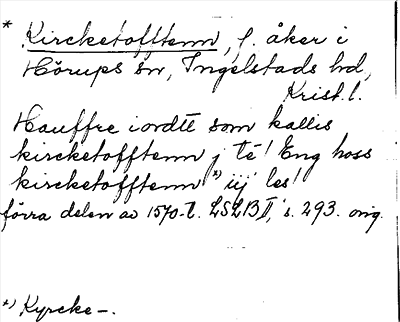 * Kircketofftenn, f. åker i
Hörups sn, Ingelstads hd,
Krist. l.
Hauffre iordtt som kallis
kircketofftenn j te! Eng hoss
kircketofftenn *) iij les!
förra delen av 1570-t. LSLB II, s. 293. orig.
*) Kyrcke-.